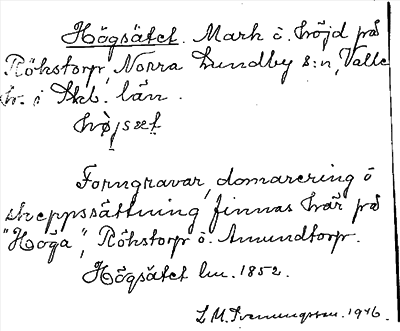 Högsätet. Mark å höjd på
Röhstorp, Norra Lundby s:n, Valle
hr. i Skb. län.
Forngravar, domarering o
skeppssättning finnas här på
"Höga", Röhstorp o. Amundtorp.
Högsätet lm. 1852.
1946.